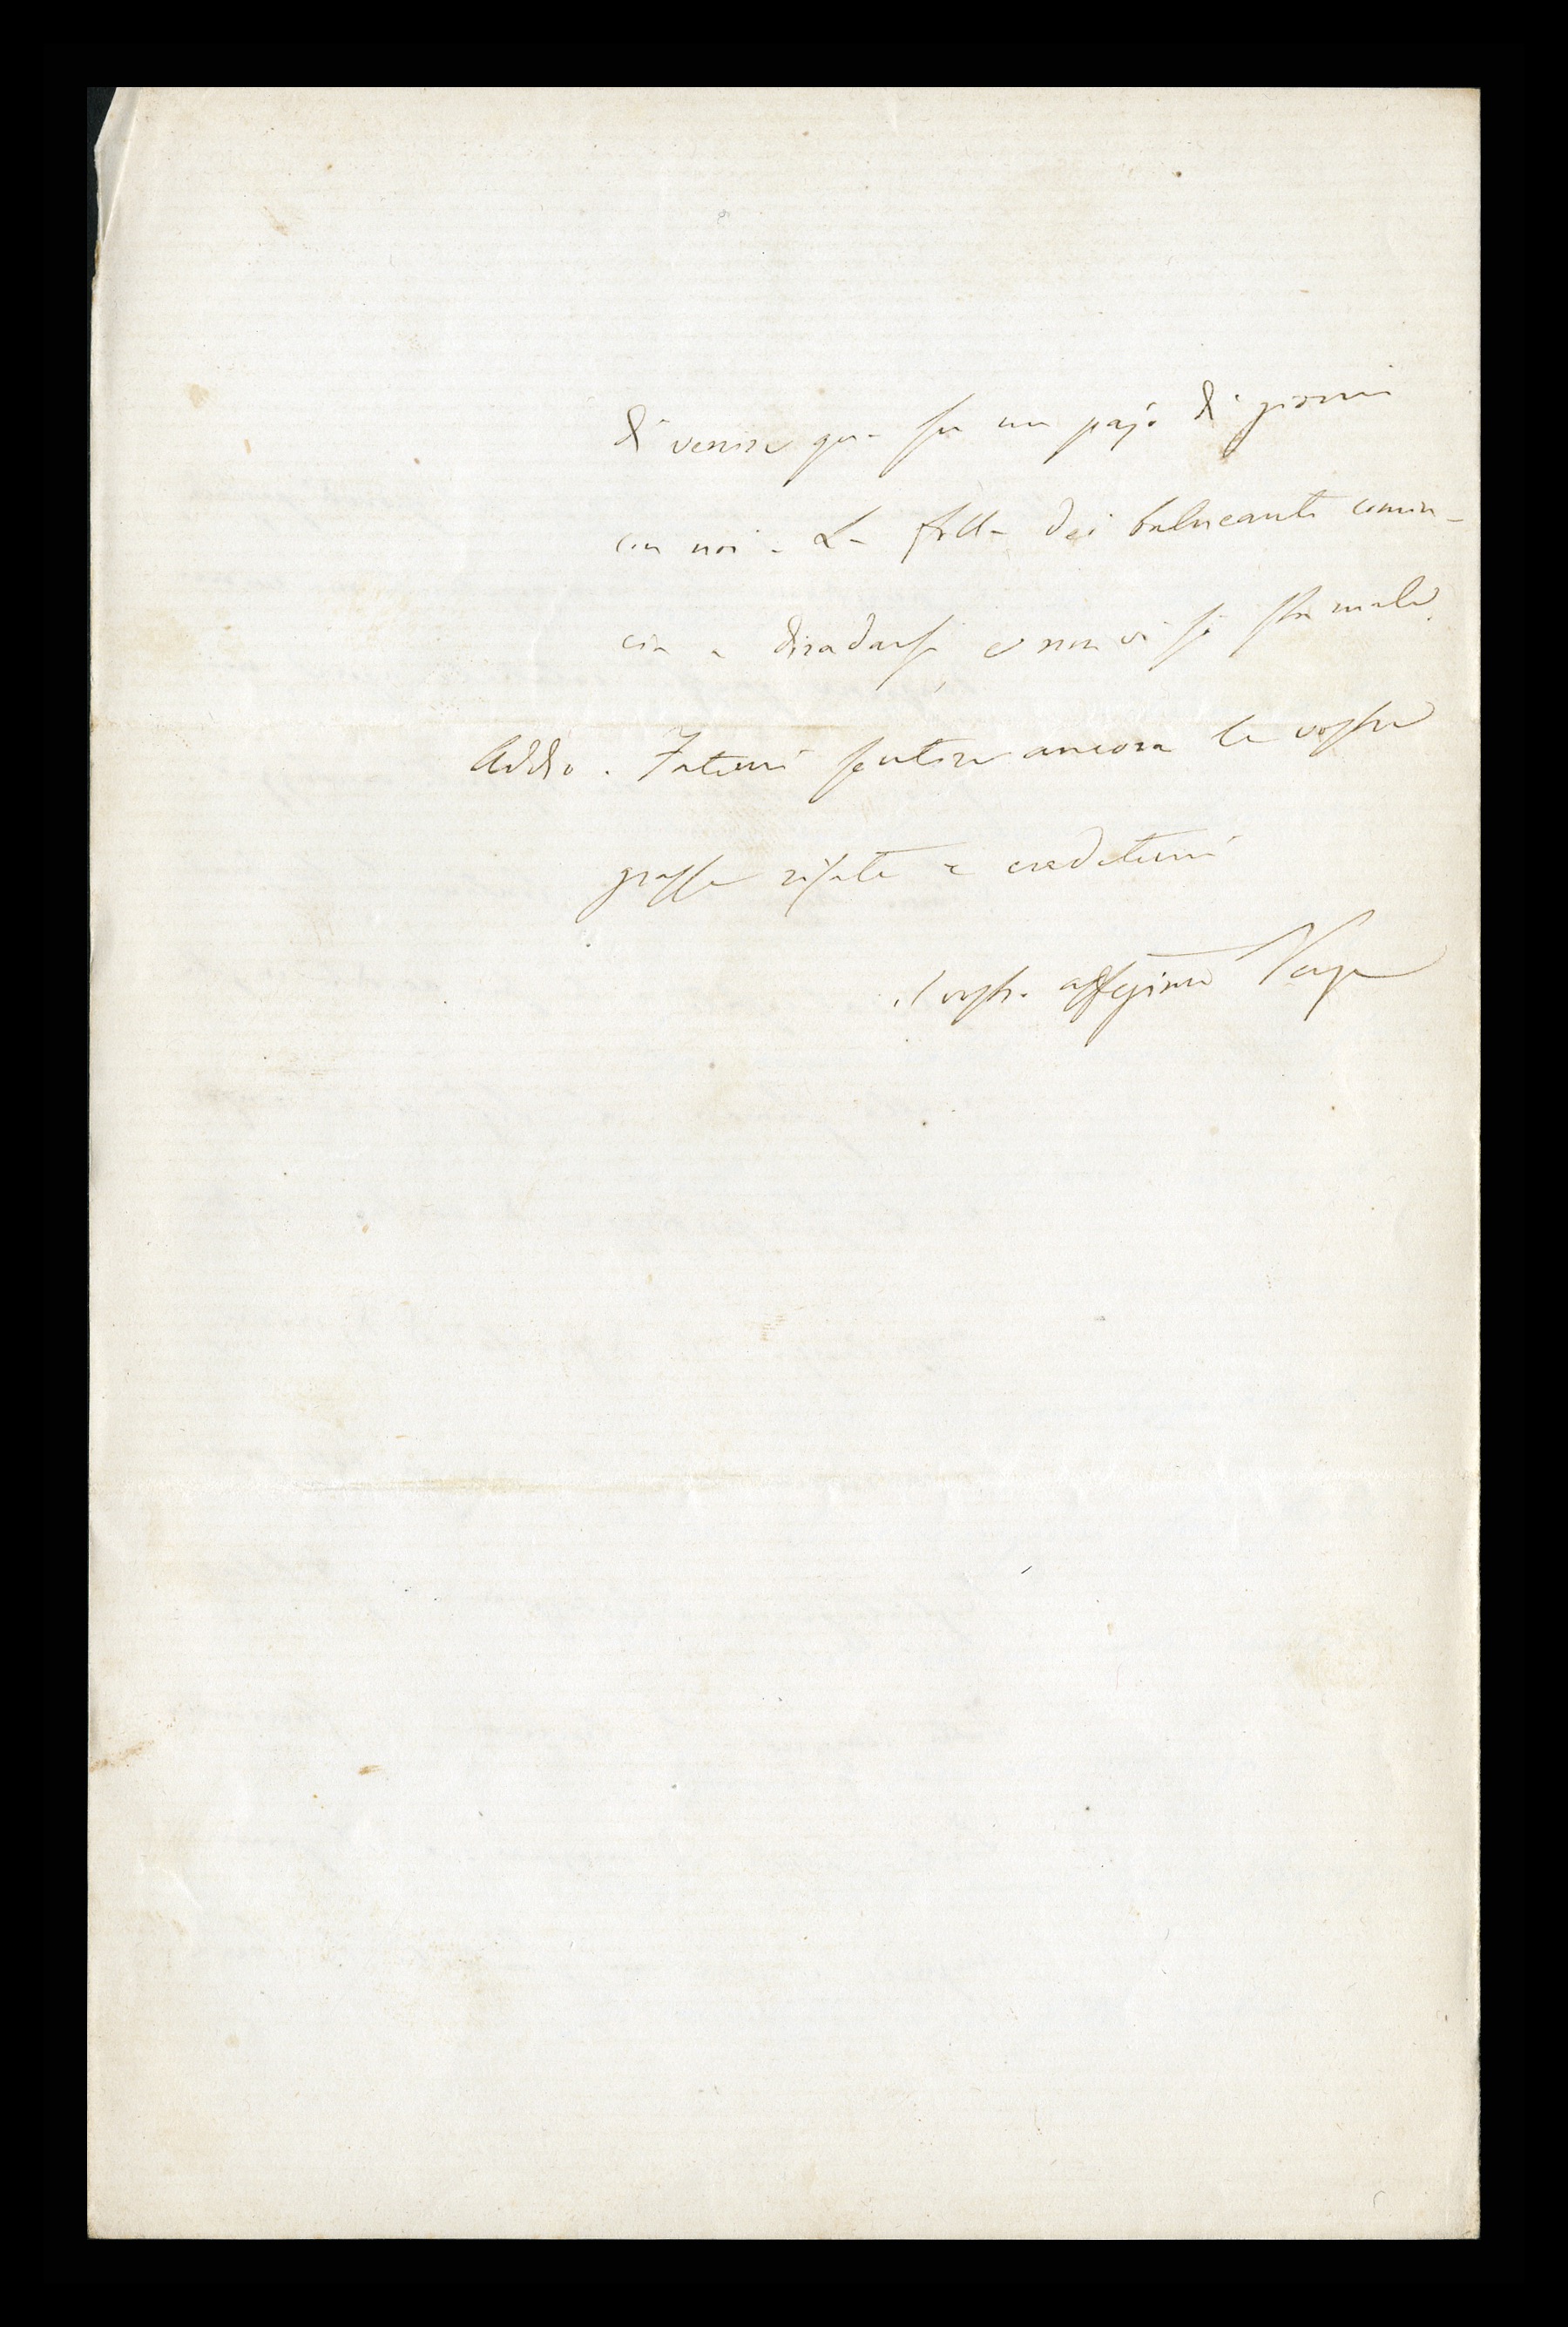 di venire qua per un pajo di giorni
con noi. La folla dei balneanti comin-
cia a diradarsi e non vi si sta male.
Addio. Fatemi sentire ancora le vostre
grasse risate e credetemi
il vostro affezimo Verga